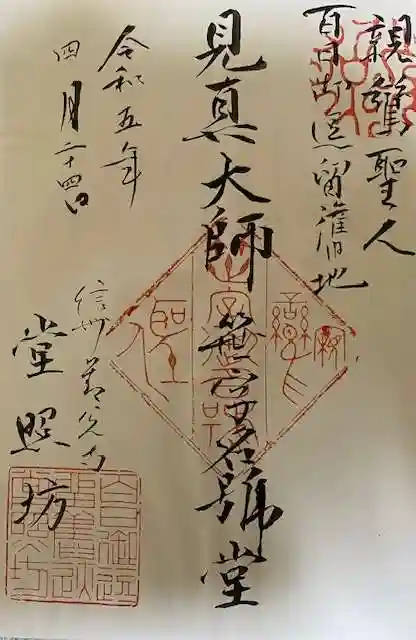 親鸞聖人
百日御逗留舊地
見真大師
笹字名號堂
令和五年
四月二十四日
信州善光寺
堂照坊